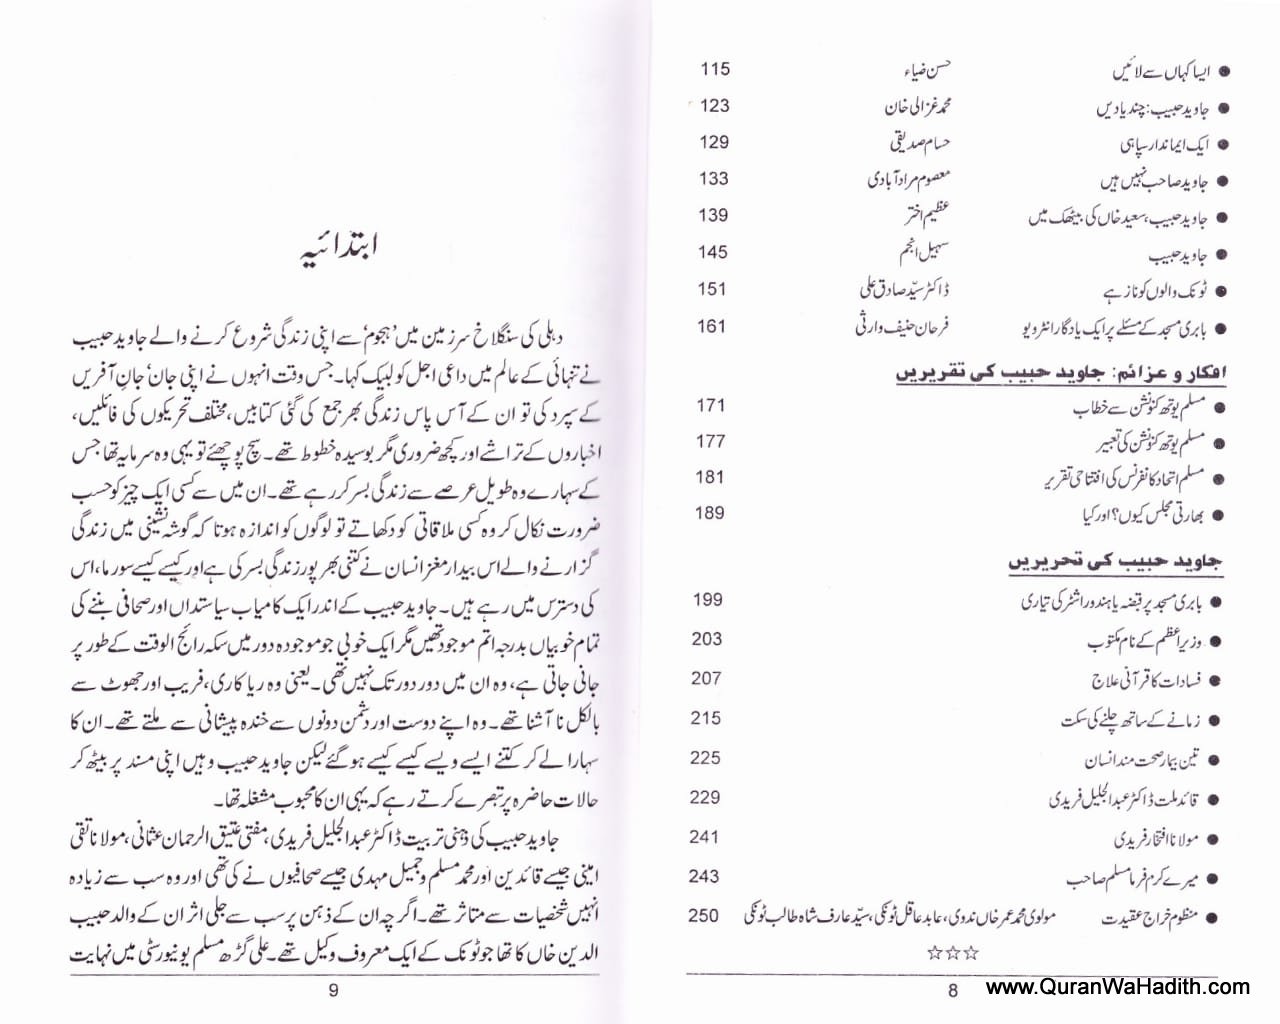 ایسا کہاں سے لائیں حسن ضیاء 115
جاوید حبیب: چند یادیں محمد غزالی خان 123
ایک ایماندار سپاہی حسام صدیقی 129
جاوید صاحب نہیں ہیں معصوم مرادآبادی 133
جاوید حبیب، سعید خاں کی بیٹھک میں عظیم اختر 139
جاوید حبیب سہیل انجم 145
ٹونک والوں کو ناز ہے ڈاکٹر سیّد صادق علی 151
بابری مسجد کے مسئلے پر ایک یادگار انٹرویو فرحان حنیف وارثی 161
افکار و عزائم: جاوید حبیب کی تقریریں
مسلم یوتھ کنونشن سے خطاب 171
مسلم یوتھ کنونشن کی تعبیر 177
مسلم اتحاد کانفرنس کی افتتاحی تقریر 181
بھارتی مجلس کیوں؟ اور کیا 189
جاوید حبیب کی تحریریں
بابری مسجد پر قبضہ یا ہندو راشٹر کی تیاری 199
وزیر اعظم کے نام مکتوب 203
فسادات کا قرآنی علاج 207
زمانے کے ساتھ چلنے کی سکت 215
تین بیمار صحت مند انسان 225
قائد ملت ڈاکٹر عبدالجلیل فریدی 229
مولانا افتخار فریدی 241
میرے کرم فرما مسلم صاحب 243
منظوم خراج عقیدت مولوی محمد عمر خاں ندوی، عابد عاقل ٹونکی، سیّد عارف شاہ طالب ٹونکی 250
☆☆☆
8
www.QuranWaHadith.com
ابتدائیہ
دہلی کی سنگلاخ سرزمین میں ’ہجوم‘ سے اپنی زندگی شروع کرنے والے جاوید حبیب
نے تنہائی کے عالم میں داعی اجل کو لبیک کہا۔ جس وقت انہوں نے اپنی جان‘ جانِ آفریں
کے سپرد کی تو ان کے آس پاس زندگی بھر جمع کی گئی کتابیں، مختلف تحریکوں کی فائلیں،
اخباروں کے تراشے اور کچھ ضروری مگر بوسیدہ خطوط تھے۔ سچ پوچھئے تو یہی وہ سرمایہ تھا جس
کے سہارے وہ طویل عرصے سے زندگی بسر کر رہے تھے۔ ان میں سے کسی ایک چیز کو حسب
ضرورت نکال کر وہ کسی ملاقاتی کو دکھاتے تو لوگوں کو اندازہ ہوتا کہ گوشہ نشینی میں زندگی
گزارنے والے اس بیدار مغز انسان نے کتنی بھرپور زندگی بسر کی ہے اور کیسے کیسے سورما، اس
کی دسترس میں رہے ہیں۔ جاوید حبیب کے اندر ایک کامیاب سیاستداں اور صحافی بننے کی
تمام خوبیاں بدرجہ اتم موجود تھیں مگر ایک خوبی جو موجودہ دور میں سکہ رائج الوقت کے طور پر
جانی جاتی ہے، وہ ان میں دور دور تک نہیں تھی۔ یعنی وہ ریاکاری، فریب اور جھوٹ سے
بالکل ناآشنا تھے۔ وہ اپنے دوست اور دشمن دونوں سے خندہ پیشانی سے ملتے تھے۔ ان کا
سہارا لے کر کتنے ایسے ویسے کیسے کیسے ہو گئے لیکن جاوید حبیب وہیں اپنی مسند پر بیٹھ کر
حالات حاضرہ پر تبصرے کرتے رہے کہ یہی ان کا محبوب مشغلہ تھا۔
جاوید حبیب کی ذہنی تربیت ڈاکٹر عبدالجلیل فریدی، مفتی عتیق الرحمان عثمانی، مولانا تقی
امینی جیسے قائدین اور محمد مسلم و جمیل مہدی جیسے صحافیوں نے کی تھی اور وہ سب سے زیادہ
انہیں شخصیات سے متاثر تھے۔ اگرچہ ان کے ذہن پر سب سے جلی اثر ان کے والد حبیب
الدین خاں کا تھا جو ٹونک کے ایک معروف وکیل تھے۔ علی گڑھ مسلم یونیورسٹی میں نہایت
9